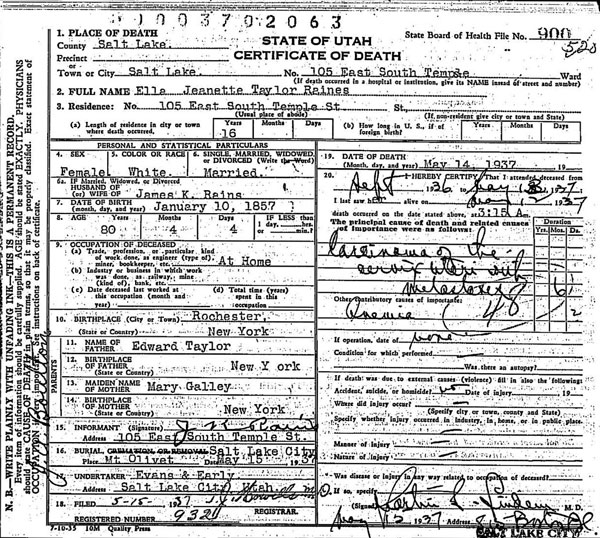 0 0 3 7 0 2 0 6 3
1. PLACE OF DEATH
County Salt Lake.
Precinct
or
Town or City Salt Lake.
STATE OF UTAH
CERTIFICATE OF DEATH
State Board of Health File No. 900
520
No. 105 East South Temple Ward
(If death occurred in a hospital or institution, give its NAME instead of street and number)
2. FULL NAME Ella Jeanette Taylor Raines
3. Residence: No. 105 East South Temple St St.
(Usual place of abode) (If non-resident give city or town and State)
(a) Length of residence in city or town where death occurred. Years 16 Months Days
(b) How long in U. S., if of foreign birth? Years Months Days
PERSONAL AND STATISTICAL PARTICULARS
4. SEX Female.
5. COLOR OR RACE White.
6. SINGLE, MARRIED, WIDOWED, or DIVORCED (Write the Word) Married.
6a. If Married, Widowed, or Divorced
HUSBAND OF
(or) WIFE OF James K. Rains
7. DATE OF BIRTH
(month, day, and year) January 10, 1857
8. AGE Years 80 Months 4 Days 4 IF LESS than 1 day hrs. or min.?
9. OCCUPATION OF DECEASED
(a) Trade, profession, or particular kind of work done, as engineer (type of), miner, bookkeeper, etc. At Home
(b) Industry or business in which work was done, as railway, mine (kind of), bank, etc.
(c) Date deceased last worked at this occupation (month and year)
(d) Total time (years) spent in this occupation
10. BIRTHPLACE (City or Town) Rochester,
(State or Country) New York
PARENTS
11. NAME OF FATHER Edward Taylor
12. BIRTHPLACE OF FATHER (State or Country) New Y ork
13. MAIDEN NAME OF MOTHER Mary Galley
14. BIRTHPLACE OF MOTHER (State or Country) New York
15. INFORMANT (Signature) J. K. Rains
Address 105 East South Temple St.
16. BURIAL, CREMATION, OR REMOVAL Salt Lake City
Place Mt Olivet Date May 15 1937
17. UNDERTAKER Evans & Early
Address Salt Lake City Utah.
18. FILED 5-15- 1937 M.D.
REGISTRAR.
REGISTERED NUMBER 932
7-10-35 10M Quality Press
19. DATE OF DEATH
(Month, day, and year) May 14, 1937 19
20. I HEREBY CERTIFY, That I attended deceased from
Sept 1936, to May 1937
I last saw her alive on May 1937
death occurred on the date stated above, at 3:15 A m.
The principal cause of death and related causes of importance were as follows:
Duration
Yrs. Mos. Ds.
Carcinoma of the
cervix uteri with
metastases 6
48
Other contributory causes of importance:
Anemia 2
If operation, date of none
Condition for which performed
Was there an autopsy?
If death was due to external causes (violence) fill in also the following:
Accident, suicide, or homicide? no Date of injury 19
Where did injury occur?
(Specify city or town, county and State)
Specify whether injury occurred in industry, in home, or in public place.
Manner of injury
Nature of injury
Was disease or injury in any way related to occupation of deceased?
If so, specify
(Signed) M. D.
May 1937
SALT LAKE CITY
N. B.—WRITE PLAINLY WITH UNFADING INK—THIS IS A PERMANENT RECORD.
Every item of information should be carefully supplied. AGE should be stated EXACTLY. PHYSICIANS
should state CAUSE OF DEATH in plain terms, so that it may be properly classified. Exact statement of
OCCUPATION is very important. See instructions on back of certificate.